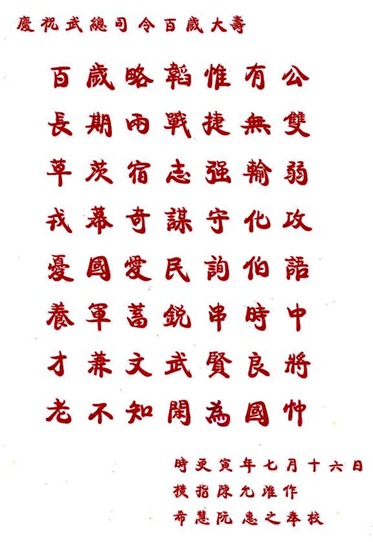 慶祝武總司令百歲大壽
百歲略韜惟有公
長期兩戰捷無雙
草茨宿志强輸弱
戎幕奇謀守化攻
憂國愛民詢伯語
養軍蓄銳串時中
才兼文武賢良將
老不知閑為國忡
時更寅年七月十六日
横指陳允准作
希慧阮惠之奉校